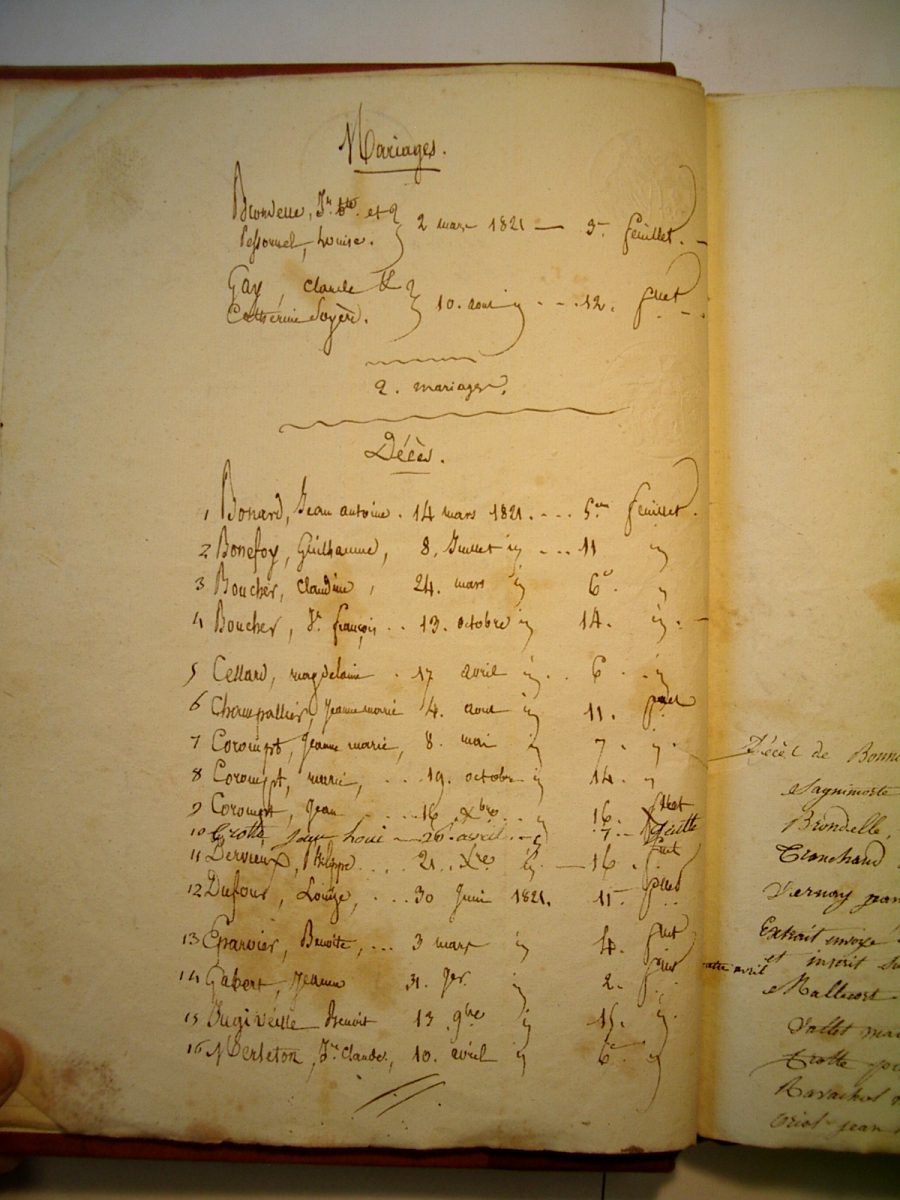 Mariages.
Brondelle, Jn. Bte. et
Pessonnel, Louise. 2 mars 1821 — 3e feuillet.
Gay, Claude
Catherine Soyère. 10. aout id - - - 12. fuet
2. mariages.
Décès.
1 Bonard, Jean antoine. 14 mars 1821. - - - 5em feuillet.
2 Bonefoy, Guilhaume, 8. Juillet id - - - 11 id
3 Boucher, claudine, 24. mars id 6e id
4 Boucher, Jn. françois - - 13. octobre id 14. id. -
5 Cellard, magdelaine - 17 avril id - - 6 - - id
6 Champallier, Jeanne marie 4. aout id 11. fuet
7 Corompt, Jeanne marie, 8. mai id 7. id.
8 Corompt, marie, - - - 19. octobre id 14. id
9 Corompt, Jean - - - - 16 xbre - - id 16. fuet
10 Crotte, jean - 26 avril - - id 7 -
11 Dervieux, Philippe - - - 21. xre id — 16. fuet
12 Dufour, Louise, - - - 30 Juin 1821. 11 - fuet
13 Eparvier, Benoite, - - - 3 mars id 4. fuet
14 Gabert, 31. Jer. id 2. fuet
15 Benoit 13. 9bre id 15. id.
16 Merleton, Jn. Claude, 10. avril id 6e id
Décès de Bonne
Sagnimorte
Brondelle,
Tronchand
Vernay jean
Extrait envoyé
et inscrit su
avril
Mallecort
Vallet ma
Crotte
Ravachol
oriol jean